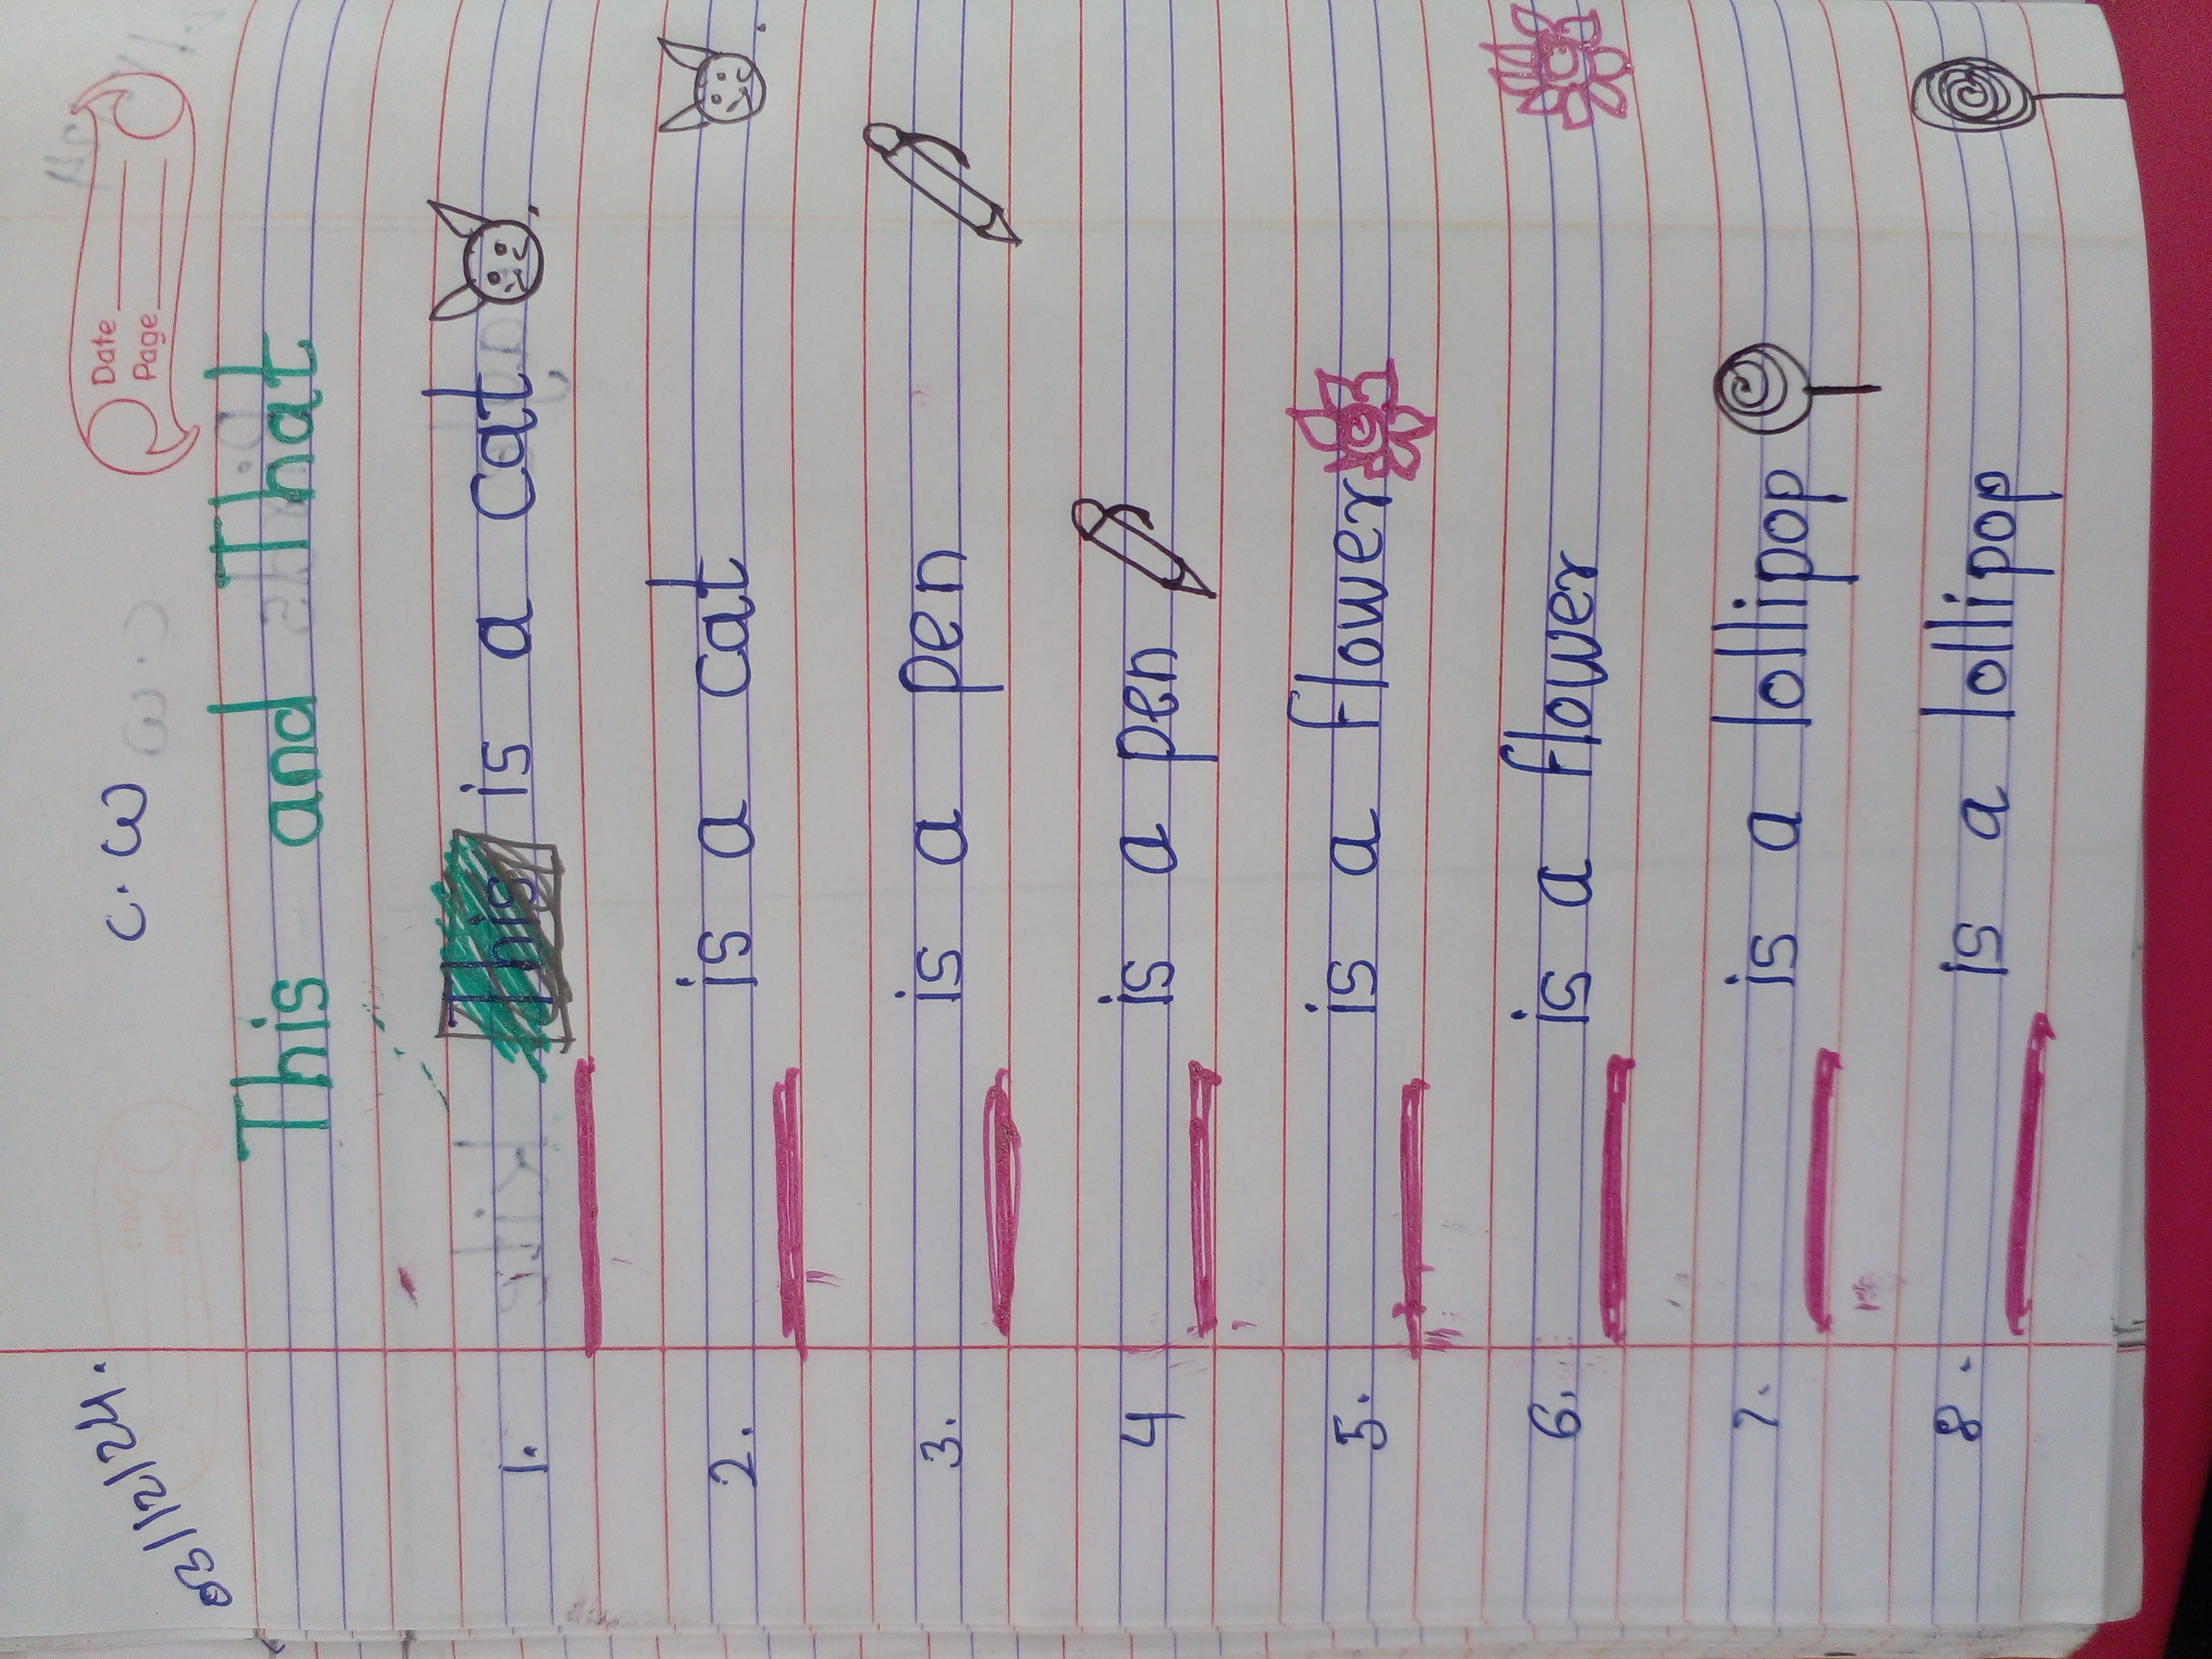 03/12/24.
c.w
Date
Page
This and That
1. This is a cat
2. is a cat
3. is a pen
4 is a pen
5. is a flower
6. is a flower
7. is a lollipop
8. is a lollipop